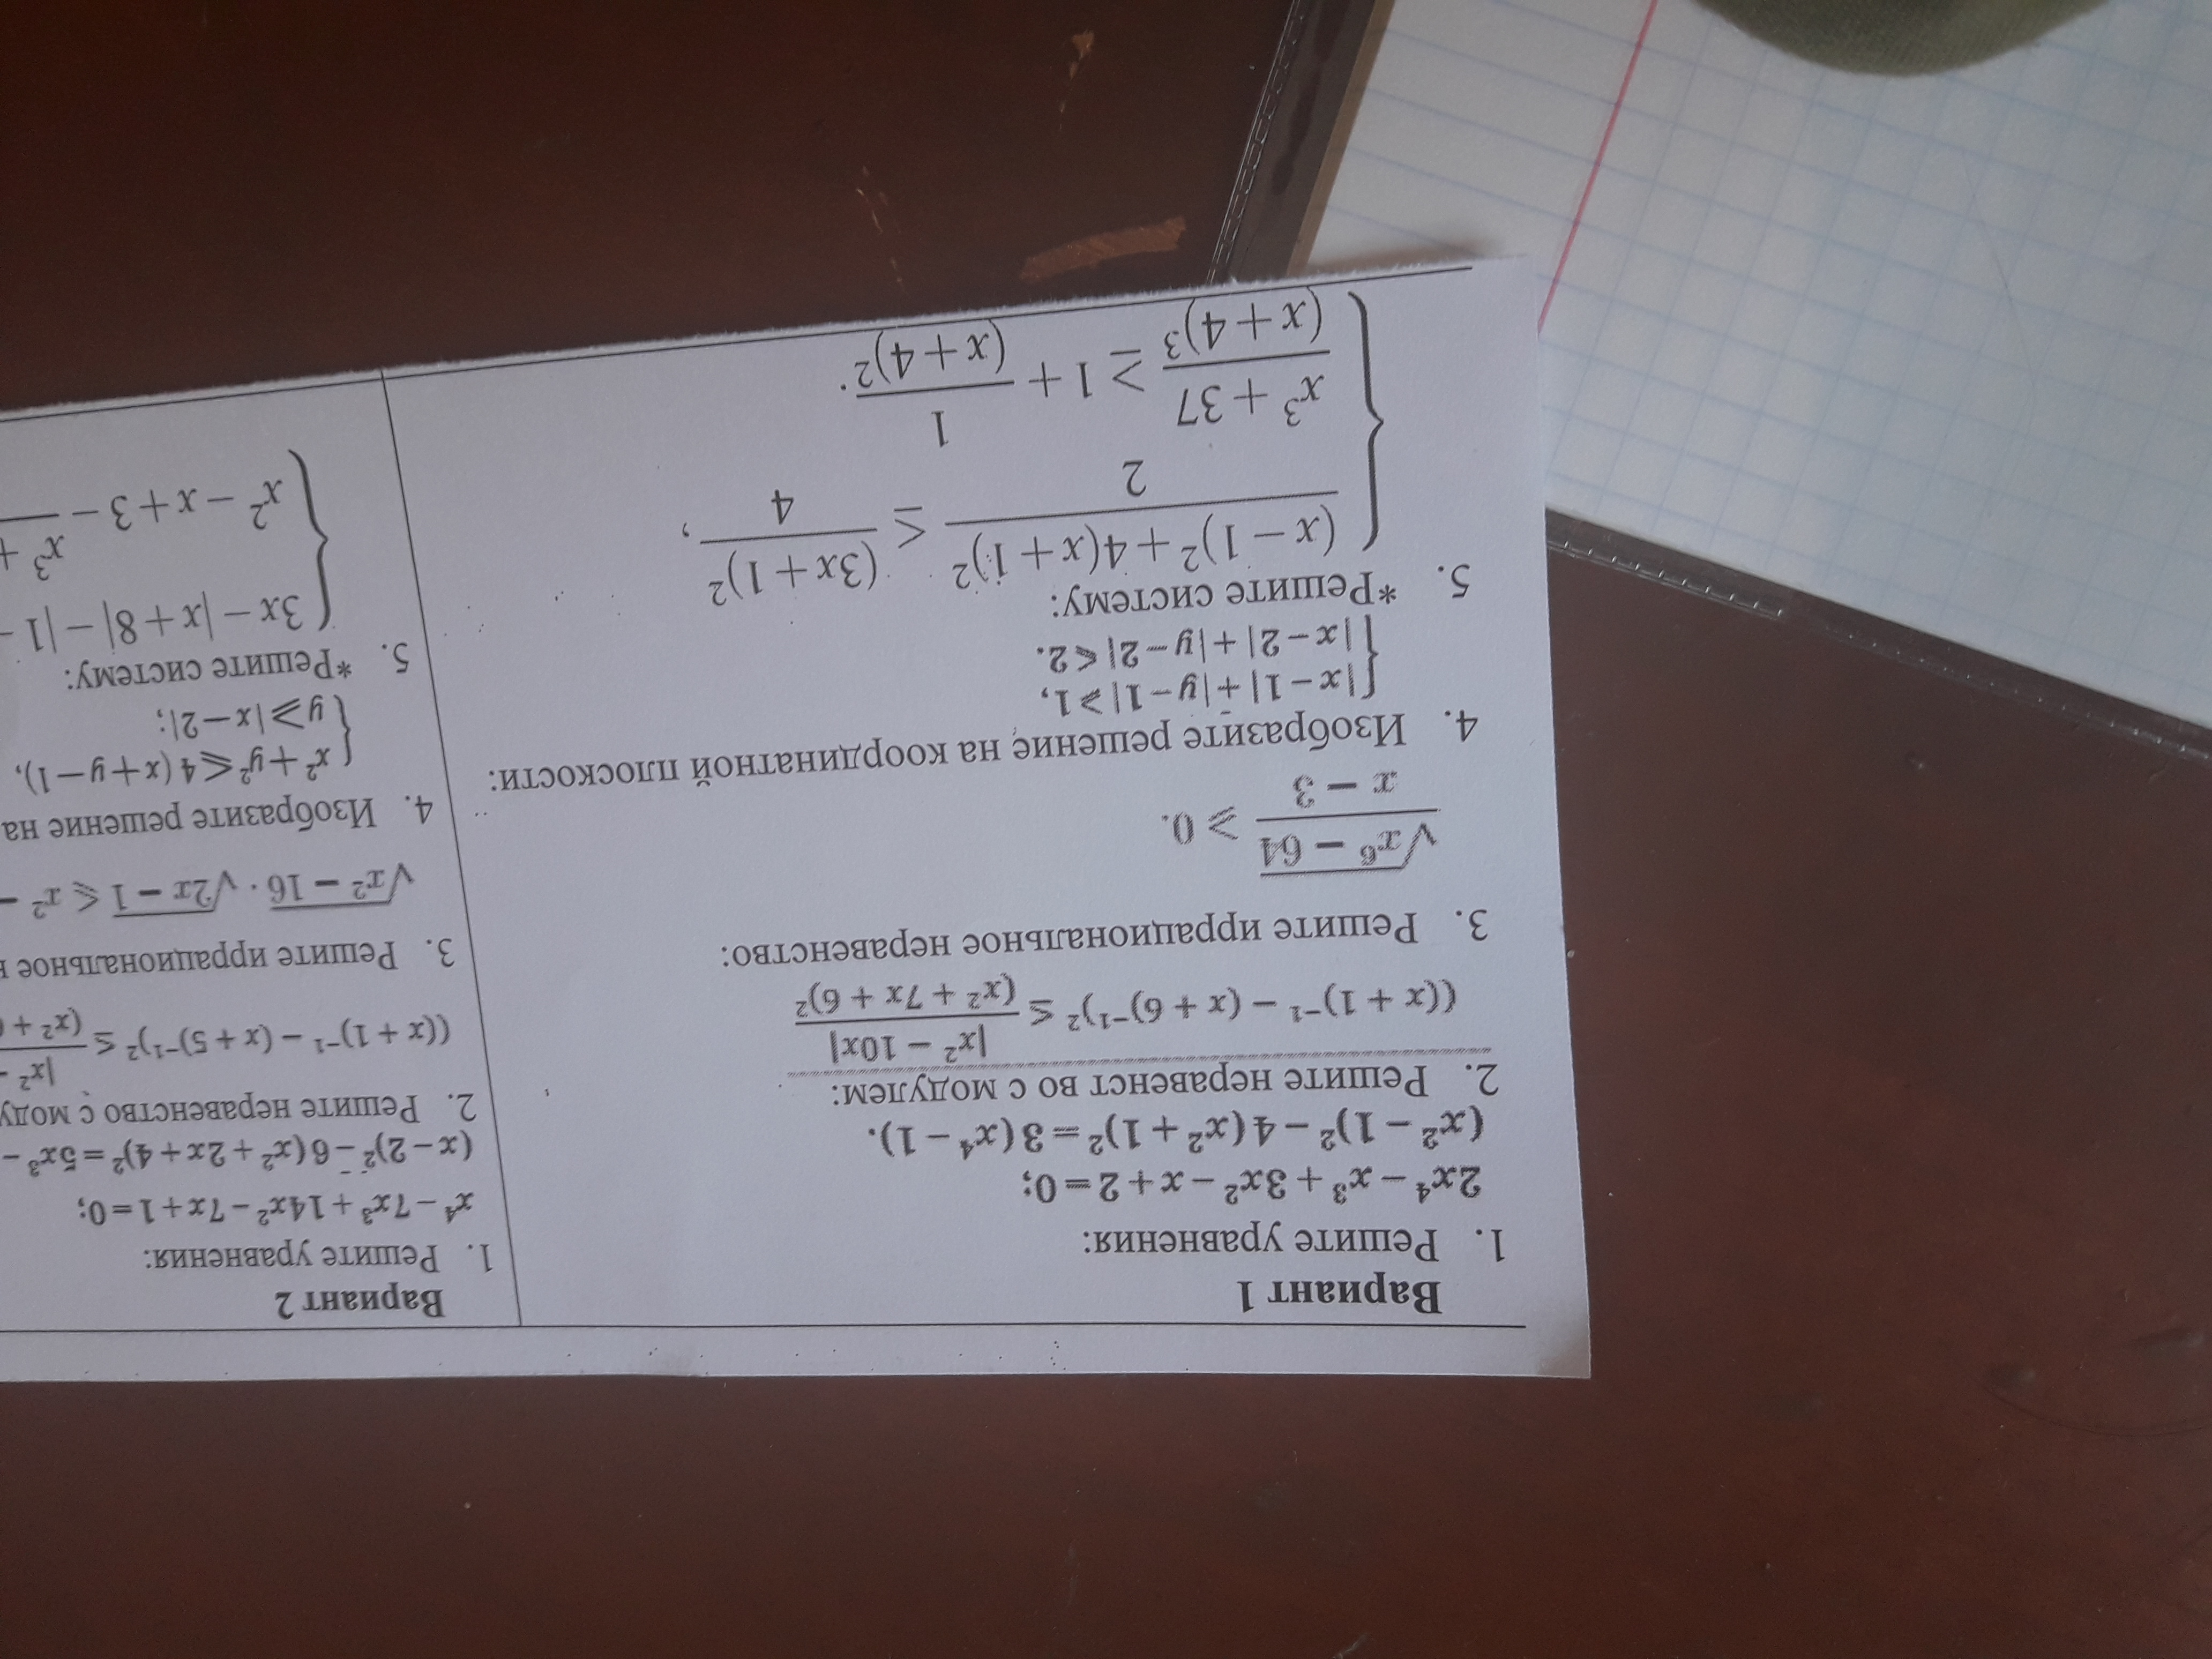 Вариант 1
1. Решите уравнения:
2x⁴ − x³ + 3x² − x + 2 = 0;
(x² − 1)² − 4(x² + 1)² = 3(x⁴ − 1).
2. Решите неравенст во с модулем:
((x + 1)⁻¹ − (x + 6)⁻¹)² ≤ |x² − 10x| / (x² + 7x + 6)²
3. Решите иррациональное неравенство:
√(x⁶ − 64) / (x − 3) ⩾ 0.
4. Изобразите решение на координатной плоскости:
{ |x − 1| + |y − 1| ⩾ 1,
|x − 2| + |y − 2| ⩽ 2.
5. *Решите систему:
{ ((x − 1)² + 4(x + 1)²) / 2 ≤ (3x + 1)² / 4,
(x³ + 37) / (x + 4)³ ≥ 1 + 1 / (x + 4)².
Вариант 2
1. Решите уравнения:
x⁴ − 7x³ + 14x² − 7x + 1 = 0;
(x − 2)² − 6(x² + 2x + 4)² = 5x³ −
2. Решите неравенство с моду
((x + 1)⁻¹ − (x + 5)⁻¹)² ≤ |x² − / (x² +
3. Решите иррациональное
√(x² − 16) · √(2x − 1) ⩽ x² −
4. Изобразите решение на
{ x² + y² ⩽ 4(x + y − 1),
y ⩾ |x − 2|;
5. *Решите систему:
{ 3x − |x + 8| − |1 −
x² − x + 3 − x³ +